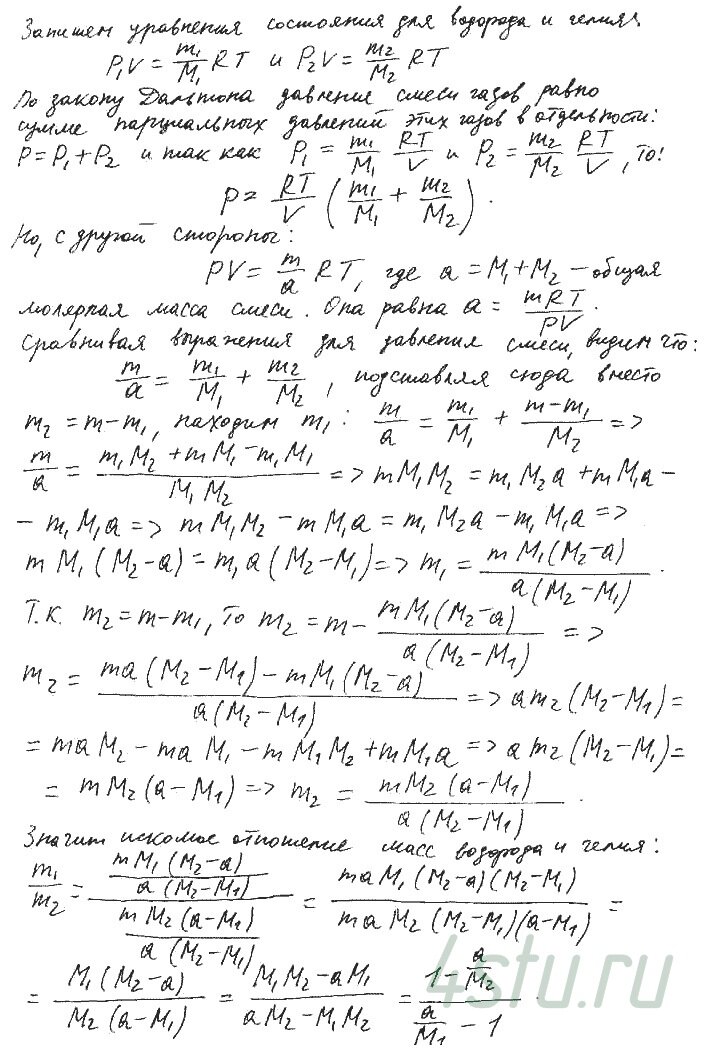 Запишем уравнения состояния для водорода и гелия:
P₁V = m₁/M₁ RT и P₂V = m₂/M₂ RT
По закону Дальтона давление смеси газов равно
сумме парциальных давлений этих газов в отдельности:
P = P₁ + P₂ и так как P₁ = m₁/M₁ RT/V и P₂ = m₂/M₂ RT/V, то:
P = RT/V (m₁/M₁ + m₂/M₂).
Но, с другой стороны:
PV = m/a RT, где a = M₁ + M₂ – общая
молярная масса смеси. Она равна a = mRT/PV.
Сравнивая выражения для давления смеси, видим что:
m/a = m₁/M₁ + m₂/M₂, подставляя сюда вместо
m₂ = m – m₁, находим m₁: m/a = m₁/M₁ + (m – m₁)/M₂ =>
m/a = (m₁M₂ + mM₁ – m₁M₁)/(M₁M₂) => mM₁M₂ = m₁M₂a + mM₁a –
– m₁M₁a => mM₁M₂ – mM₁a = m₁M₂a – m₁M₁a =>
mM₁(M₂ – a) = m₁a(M₂ – M₁) => m₁ = mM₁(M₂ – a)/(a(M₂ – M₁)).
Т.к. m₂ = m – m₁, то m₂ = m – mM₁(M₂ – a)/(a(M₂ – M₁)) =>
m₂ = (ma(M₂ – M₁) – mM₁(M₂ – a))/(a(M₂ – M₁)) => am₂(M₂ – M₁) =
= maM₂ – maM₁ – mM₁M₂ + mM₁a => am₂(M₂ – M₁) =
= mM₂(a – M₁) => m₂ = mM₂(a – M₁)/(a(M₂ – M₁)).
Значит искомое отношение масс водорода и гелия:
m₁/m₂ = (mM₁(M₂ – a)/(a(M₂ – M₁)))/(mM₂(a – M₁)/(a(M₂ – M₁))) = maM₁(M₂ – a)(M₂ – M₁)/(maM₂(M₂ – M₁)(a – M₁)) =
= M₁(M₂ – a)/(M₂(a – M₁)) = (M₁M₂ – aM₁)/(aM₂ – M₁M₂) = (1 – a/M₂)/(a/M₁ – 1).
4stu.ru